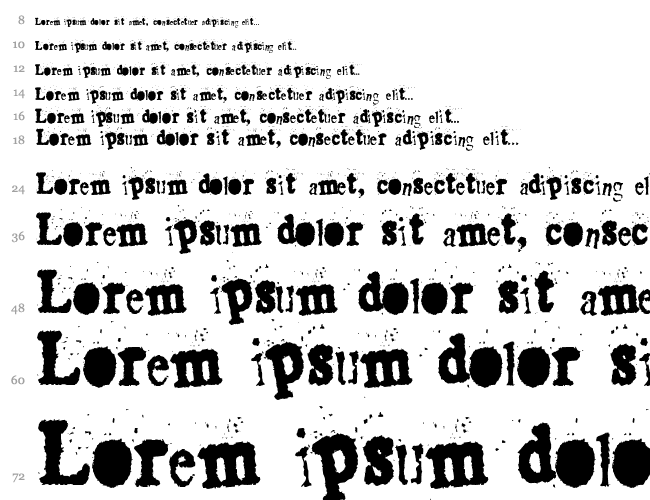 8 Lorem ipsum dolor sit amet, consectetuer adipiscing elit...
10 Lorem ipsum dolor sit amet, consectetuer adipiscing elit..
12 Lorem ipsum dolor sit amet, consectetuer adipiscing elit...
14 Lorem ipsum dolor sit amet, consectetuer adipiscing elit...
16 Lorem ipsum dolor sit amet, consectetuer adipiscing elit...
18 Lorem ipsum dolor sit amet, consectetuer adipiscing elit...
24 Lorem ipsum dolor sit amet, consectetuer adipiscing el
36 Lorem ipsum dolor sit amet, consec
48 Lorem ipsum dolor sit ame
60 Lorem ipsum dolor si
72 Lorem ipsum dolo